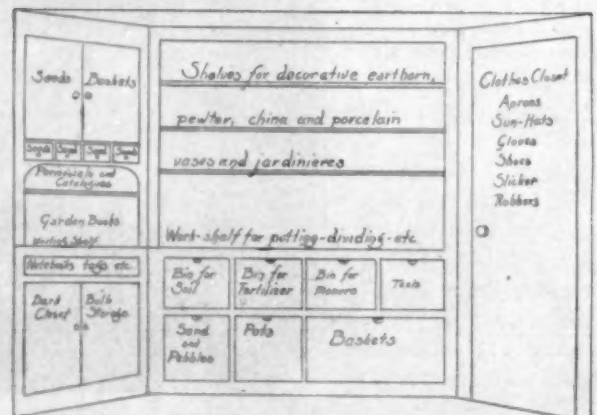 Seeds Baskets
Seeds Seeds Seeds Seeds
Periodicals and
Catalogues
Garden Books
Writing Shelf
Notebooks tags etc.
Dark
Closet
Bulb
Storage
Shelves for decorative earthern,
pewter, china and porcelain
vases and jardinieres
Work-shelf for potting-dividing-etc
Bin for
Soil
Bin for
Fertilizer
Bin for
Manure
Tools
Sand
and
Pebbles
Pots
Baskets
Clothes Closet
Aprons
Sun-Hats
Gloves
Shoes
Slicker
Rubbers